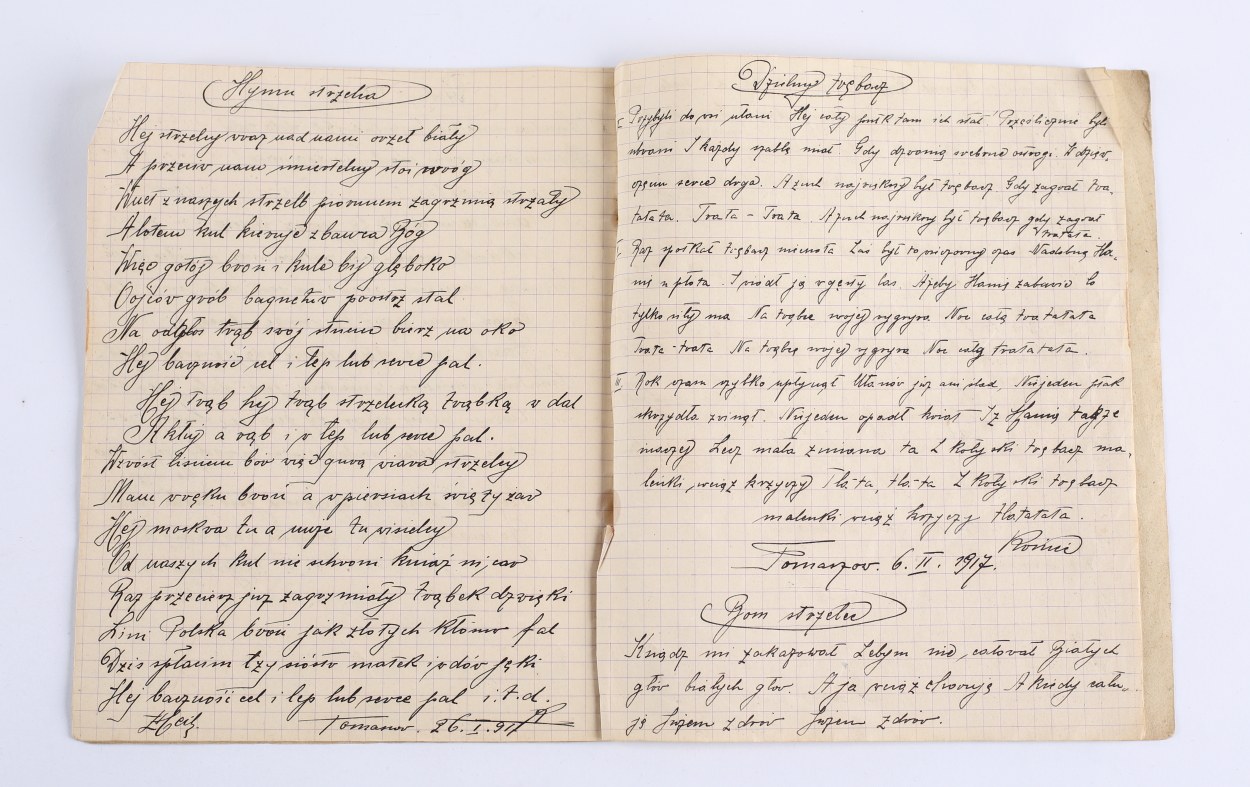 Hymn strzelca
Hej strzelcy wraz nad nami orzeł biały
A przeciw nam śmiertelny stoi wróg
Wnet z naszych strzelb piorunem zagrzmią strzały
A lotem kul kieruje zbawca Bóg
Więc gotój broń i kule bij głęboko
Oojców grób bagnetów poostrz stal
Na odgłos trąb swój sztuciec bierz na oko
Hej baczność cel i łep lub serce pal.
Hej trąb hej trąb strzelecką trąbką w dal
A kłuj a rąb i w łep lub serce pal.
Wzrósł liściem bór więc górą wiara strzelcy
Mamy w ręku broń a w piersiach święty żar
Hej moskwa tu a nuże tu wisielcy
Od naszych kul nie schroni kniaź ni car
Raz przecierz już zagrzmiały trąbek dzwięki
Lśni Polska broń jak złotych kłosów fal
Dziś spłacim łzy sióstr matek i wdów jęki
Hej baczność cel i łep lub serce pal i.t.d.
Tomaszów. 26.I.917
Dzielny trębacz
Przybyli do wsi ułani Hej cały pułk tam ich stał Prześlicznie byli
ubrani I każdy szablę miał. Gdy dzwonią srebrne ostrogi. W dziew-
częciu serce drga. A zuch najwiękrzy był trębacz Gdy zagrał tra-
tatata. Trata - Trata A zuch najwiękrzy był trębacz gdy zagrał
tratata.
Raz spotkał trębacz niecnota Zaś był to wieczorny czas Nadobną Ha-
nię u płota. I wiódł ją w gęsty las. Ażeby Hanię zabawić Co
tylko siły ma Na trąbce swojej wygrywa Noc całą tratatata
Trata-trata Na trąbce swojej wygrywa Noc całą tratatata.
III Rok czasu szybko upłynął Ułanów już ani ślad. Niejeden ptak
skrzydła zwinął. Niejeden opadł kwiat I z Hanią także
inaczej Lecz mała zmiana ta Z kołyski trębacz ma-
leńki, wciąż krzyczy Tla-ta, tla-ta Z kołyski trębacz
maleńki wciąż krzyczy tlatata.
Koniec
Tomaszow. 6.II.1917.
Bom strzelec
Ksiądz mi zakazował Żebym nie całował Białych
głów białych głow. A ja wciąż choruję A kiedy cału-
ję Jużem zdrów Jużem zdrów.